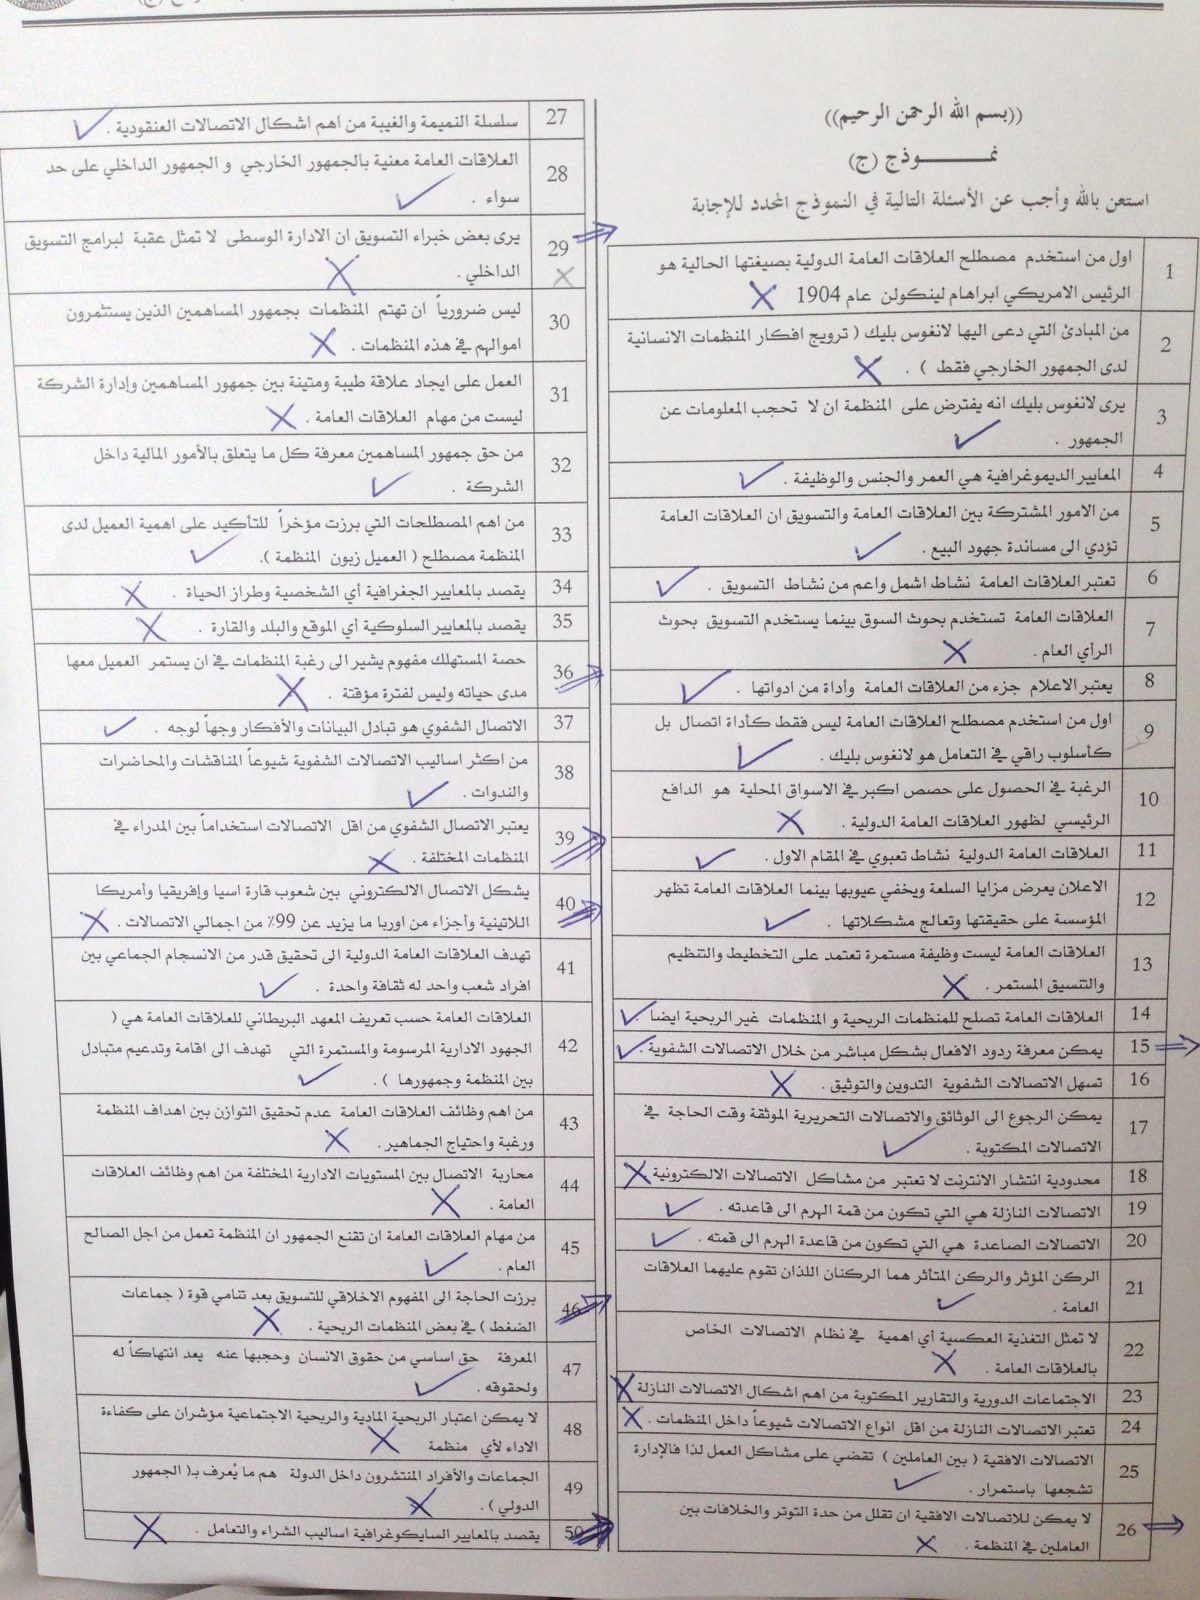 ((بسم الله الرحمن الرحيم))
نمـــــــوذج (ج)
استعن بالله وأجب عن الأسئلة التالية في النموذج المحدد للإجابة
1 اول من استخدم مصطلح العلاقات العامة الدولية بصيغتها الحالية هو
الرئيس الامريكي ابراهام لينكولن عام 1904 ✗
2 من المبادئ التي دعى اليها لانغوس بليك ( ترويج افكار المنظمات الانسانية
لدى الجمهور الخارجي فقط ) . ✗
3 يرى لانغوس بليك انه يفترض على المنظمة ان لا تحجب المعلومات عن
الجمهور . ✓
4 المعايير الديموغرافية هي العمر والجنس والوظيفة . ✓
5 من الامور المشتركة بين العلاقات العامة والتسويق ان العلاقات العامة
تؤدي الى مساندة جهود البيع . ✓
6 تعتبر العلاقات العامة نشاط اشمل واعم من نشاط التسويق . ✓
7 العلاقات العامة تستخدم بحوث السوق بينما يستخدم التسويق بحوث
الرأي العام . ✗
8 يعتبر الاعلام جزء من العلاقات العامة وأداة من ادواتها . ✓
9 اول من استخدم مصطلح العلاقات العامة ليس فقط كأداة اتصال بل
كأسلوب راقي في التعامل هو لانغوس بليك . ✓
10 الرغبة في الحصول على حصص اكبر في الاسواق المحلية هو الدافع
الرئيسي لظهور العلاقات العامة الدولية . ✗
11 العلاقات العامة الدولية نشاط تعبوي في المقام الاول . ✓
12 الاعلان يعرض مزايا السلعة ويخفي عيوبها بينما العلاقات العامة تظهر
المؤسسة على حقيقتها وتعالج مشكلاتها . ✓
13 العلاقات العامة ليست وظيفة مستمرة تعتمد على التخطيط والتنظيم
والتنسيق المستمر . ✗
14 العلاقات العامة تصلح للمنظمات الربحية و المنظمات غير الربحية ايضا . ✓
15 يمكن معرفة ردود الافعال بشكل مباشر من خلال الاتصالات الشفوية . ✓
16 تسهل الاتصالات الشفوية التدوين والتوثيق . ✗
17 يمكن الرجوع الى الوثائق والاتصالات التحريرية الموثقة وقت الحاجة في
الاتصالات المكتوبة . ✓
18 محدودية انتشار الانترنت لا تعتبر من مشاكل الاتصالات الالكترونية ✗
19 الاتصالات النازلة هي التي تكون من قمة الهرم الى قاعدته . ✓
20 الاتصالات الصاعدة هي التي تكون من قاعدة الهرم الى قمته . ✓
21 الركن المؤثر والركن المتأثر هما الركنان اللذان تقوم عليهما العلاقات
العامة . ✓
22 لا تمثل التغذية العكسية أي اهمية في نظام الاتصالات الخاص
بالعلاقات العامة . ✗
23 الاجتماعات الدورية والتقارير المكتوبة من اهم اشكال الاتصالات النازلة ✗
24 تعتبر الاتصالات النازلة من اقل انواع الاتصالات شيوعاً داخل المنظمات . ✗
25 الاتصالات الافقية ( بين العاملين ) تقضي على مشاكل العمل لذا فالإدارة
تشجعها باستمرار . ✓
26 لا يمكن للاتصالات الافقية ان تقلل من حدة التوتر والخلافات بين
العاملين في المنظمة . ✗
27 سلسلة النميمة والغيبة من اهم اشكال الاتصالات العنقودية . ✓
28 العلاقات العامة معنية بالجمهور الخارجي و الجمهور الداخلي على حد
سواء . ✓
29 يرى بعض خبراء التسويق ان الادارة الوسطى لا تمثل عقبة لبرامج التسويق
الداخلي . ✗
30 ليس ضرورياً ان تهتم المنظمات بجمهور المساهمين الذين يستثمرون
اموالهم في هذه المنظمات . ✗
31 العمل على ايجاد علاقة طيبة ومتينة بين جمهور المساهمين وإدارة الشركة
ليست من مهام العلاقات العامة . ✗
32 من حق جمهور المساهمين معرفة كل ما يتعلق بالأمور المالية داخل
الشركة . ✓
33 من اهم المصطلحات التي برزت مؤخراً للتأكيد على اهمية العميل لدى
المنظمة مصطلح ( العميل زبون المنظمة ). ✓
34 يقصد بالمعايير الجغرافية أي الشخصية وطراز الحياة . ✗
35 يقصد بالمعايير السلوكية أي الموقع والبلد والقارة . ✗
36 حصة المستهلك مفهوم يشير الى رغبة المنظمات في ان يستمر العميل معها
مدى حياته وليس لفترة مؤقتة . ✗
37 الاتصال الشفوي هو تبادل البيانات والأفكار وجهاً لوجه . ✓
38 من اكثر اساليب الاتصالات الشفوية شيوعاً المناقشات والمحاضرات
والندوات . ✓
39 يعتبر الاتصال الشفوي من اقل الاتصالات استخداماً بين المدراء في
المنظمات المختلفة . ✗
40 يشكل الاتصال الالكتروني بين شعوب قارة اسيا وإفريقيا وأمريكا
اللاتينية وأجزاء من اوربا ما يزيد عن 99٪ من اجمالي الاتصالات . ✗
41 تهدف العلاقات العامة الدولية الى تحقيق قدر من الانسجام الجماعي بين
افراد شعب واحد له ثقافة واحدة . ✓
42 العلاقات العامة حسب تعريف المعهد البريطاني للعلاقات العامة هي (
الجهود الادارية المرسومة والمستمرة التي تهدف الى اقامة وتدعيم متبادل
بين المنظمة وجمهورها ) . ✓
43 من اهم وظائف العلاقات العامة عدم تحقيق التوازن بين اهداف المنظمة
ورغبة واحتياج الجماهير . ✗
44 محاربة الاتصال بين المستويات الادارية المختلفة من اهم وظائف العلاقات
العامة . ✗
45 من مهام العلاقات العامة ان تقنع الجمهور ان المنظمة تعمل من اجل الصالح
العام . ✓
46 برزت الحاجة الى المفهوم الاخلاقي للتسويق بعد تنامي قوة ( جماعات
الضغط ) في بعض المنظمات الربحية . ✗
47 المعرفة حق اساسي من حقوق الانسان وحجبها عنه يعد انتهاكاً له
ولحقوقه . ✓
48 لا يمكن اعتبار الربحية المادية والربحية الاجتماعية مؤشران على كفاءة
الاداء لأي منظمة ✗
49 الجماعات والأفراد المنتشرون داخل الدولة هم ما يُعرف بـ( الجمهور
الدولي ) . ✗
50 يقصد بالمعايير السايكوغرافية اساليب الشراء والتعامل . ✗